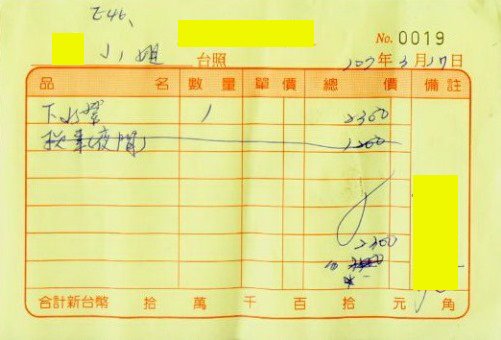 E46、
No. 0019
小姐 台照 107年3月17日
品名 數量 單價 總價 備註
下水 1 2300
1200
2300
合計新台幣 拾 萬 千 百 拾 元 角